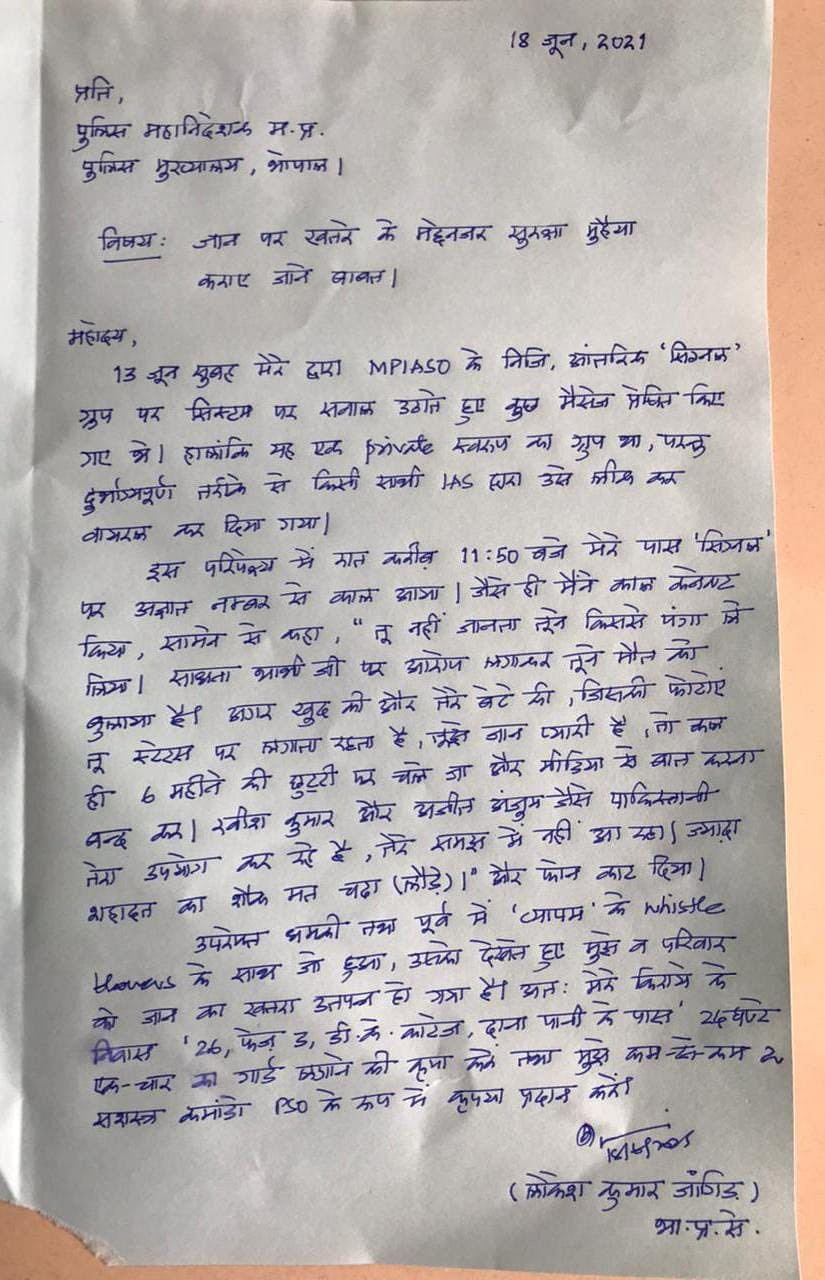 18 जून, 2021
प्रति,
पुलिस महानिदेशक म.प्र.
पुलिस मुख्यालय, भोपाल।
विषय: जान पर खतरे के मद्देनजर सुरक्षा मुहैया
कराए जाने बाबत।
महोदय,
13 जून सुबह मेरे द्वारा MPIASO के निजि, आंतरिक 'सिग्नल'
ग्रुप पर सिस्टम पर सवाल उठाते हुए कुछ मैसेज प्रेषित किए
गए थे। हालांकि यह एक private स्वरुप का ग्रुप था, परन्तु
दुर्भाग्यपूर्ण तरीके से किसी साथी IAS द्वारा उसे लीक कर
वायरल कर दिया गया।
इस परिपेक्ष्य में रात करीब 11:50 बजे मेरे पास 'सिग्नल'
पर अज्ञात नम्बर से काल आया। जैसे ही मैंने काल कनेक्ट
किया, सामने से कहा, "तू नहीं जानता तूने किससे पंगा ले
लिया। साधना भाभी जी पर आरोप लगाकर तूने मौत को
बुलाया है। अगर खुद की और तेरे बेटे की, जिसकी फोटोएं
तू स्टेटस पर लगाता रहता है, तुझे जान प्यारी है, तो कल
ही 6 महीने की छुट्टी पर चले जा और मीडिया से बात करना
बन्द कर। रवीश कुमार और अजीत अंजुम जैसे पाकिस्तानी
तेरा उपयोग कर रहे है, तेरे समझ में नहीं आ रहा। ज्यादा
शहादत का शौक मत चढ़ा (लौड़े)।" और फोन काट दिया।
उपरोक्त धमकी तथा पूर्व में 'व्यापम' के whistle
blowers के साथ जो हुआ, उसको देखते हुए मुझे व परिवार
को जान का खतरा उत्पन्न हो गया है। अत: मेरे किराये के
निवास '26, फेज़ 3, डी.के. काटेज, दाना पानी के पास' 24 घण्टे
एक-चार का गार्ड लगाने की कृपा करें तथा मुझे कम-से-कम 2
सशस्त्र कमांडो PSO के रूप में कृपया प्रदान करें।
(लोकेश कुमार जांगिड़)
भा.प्र.से.